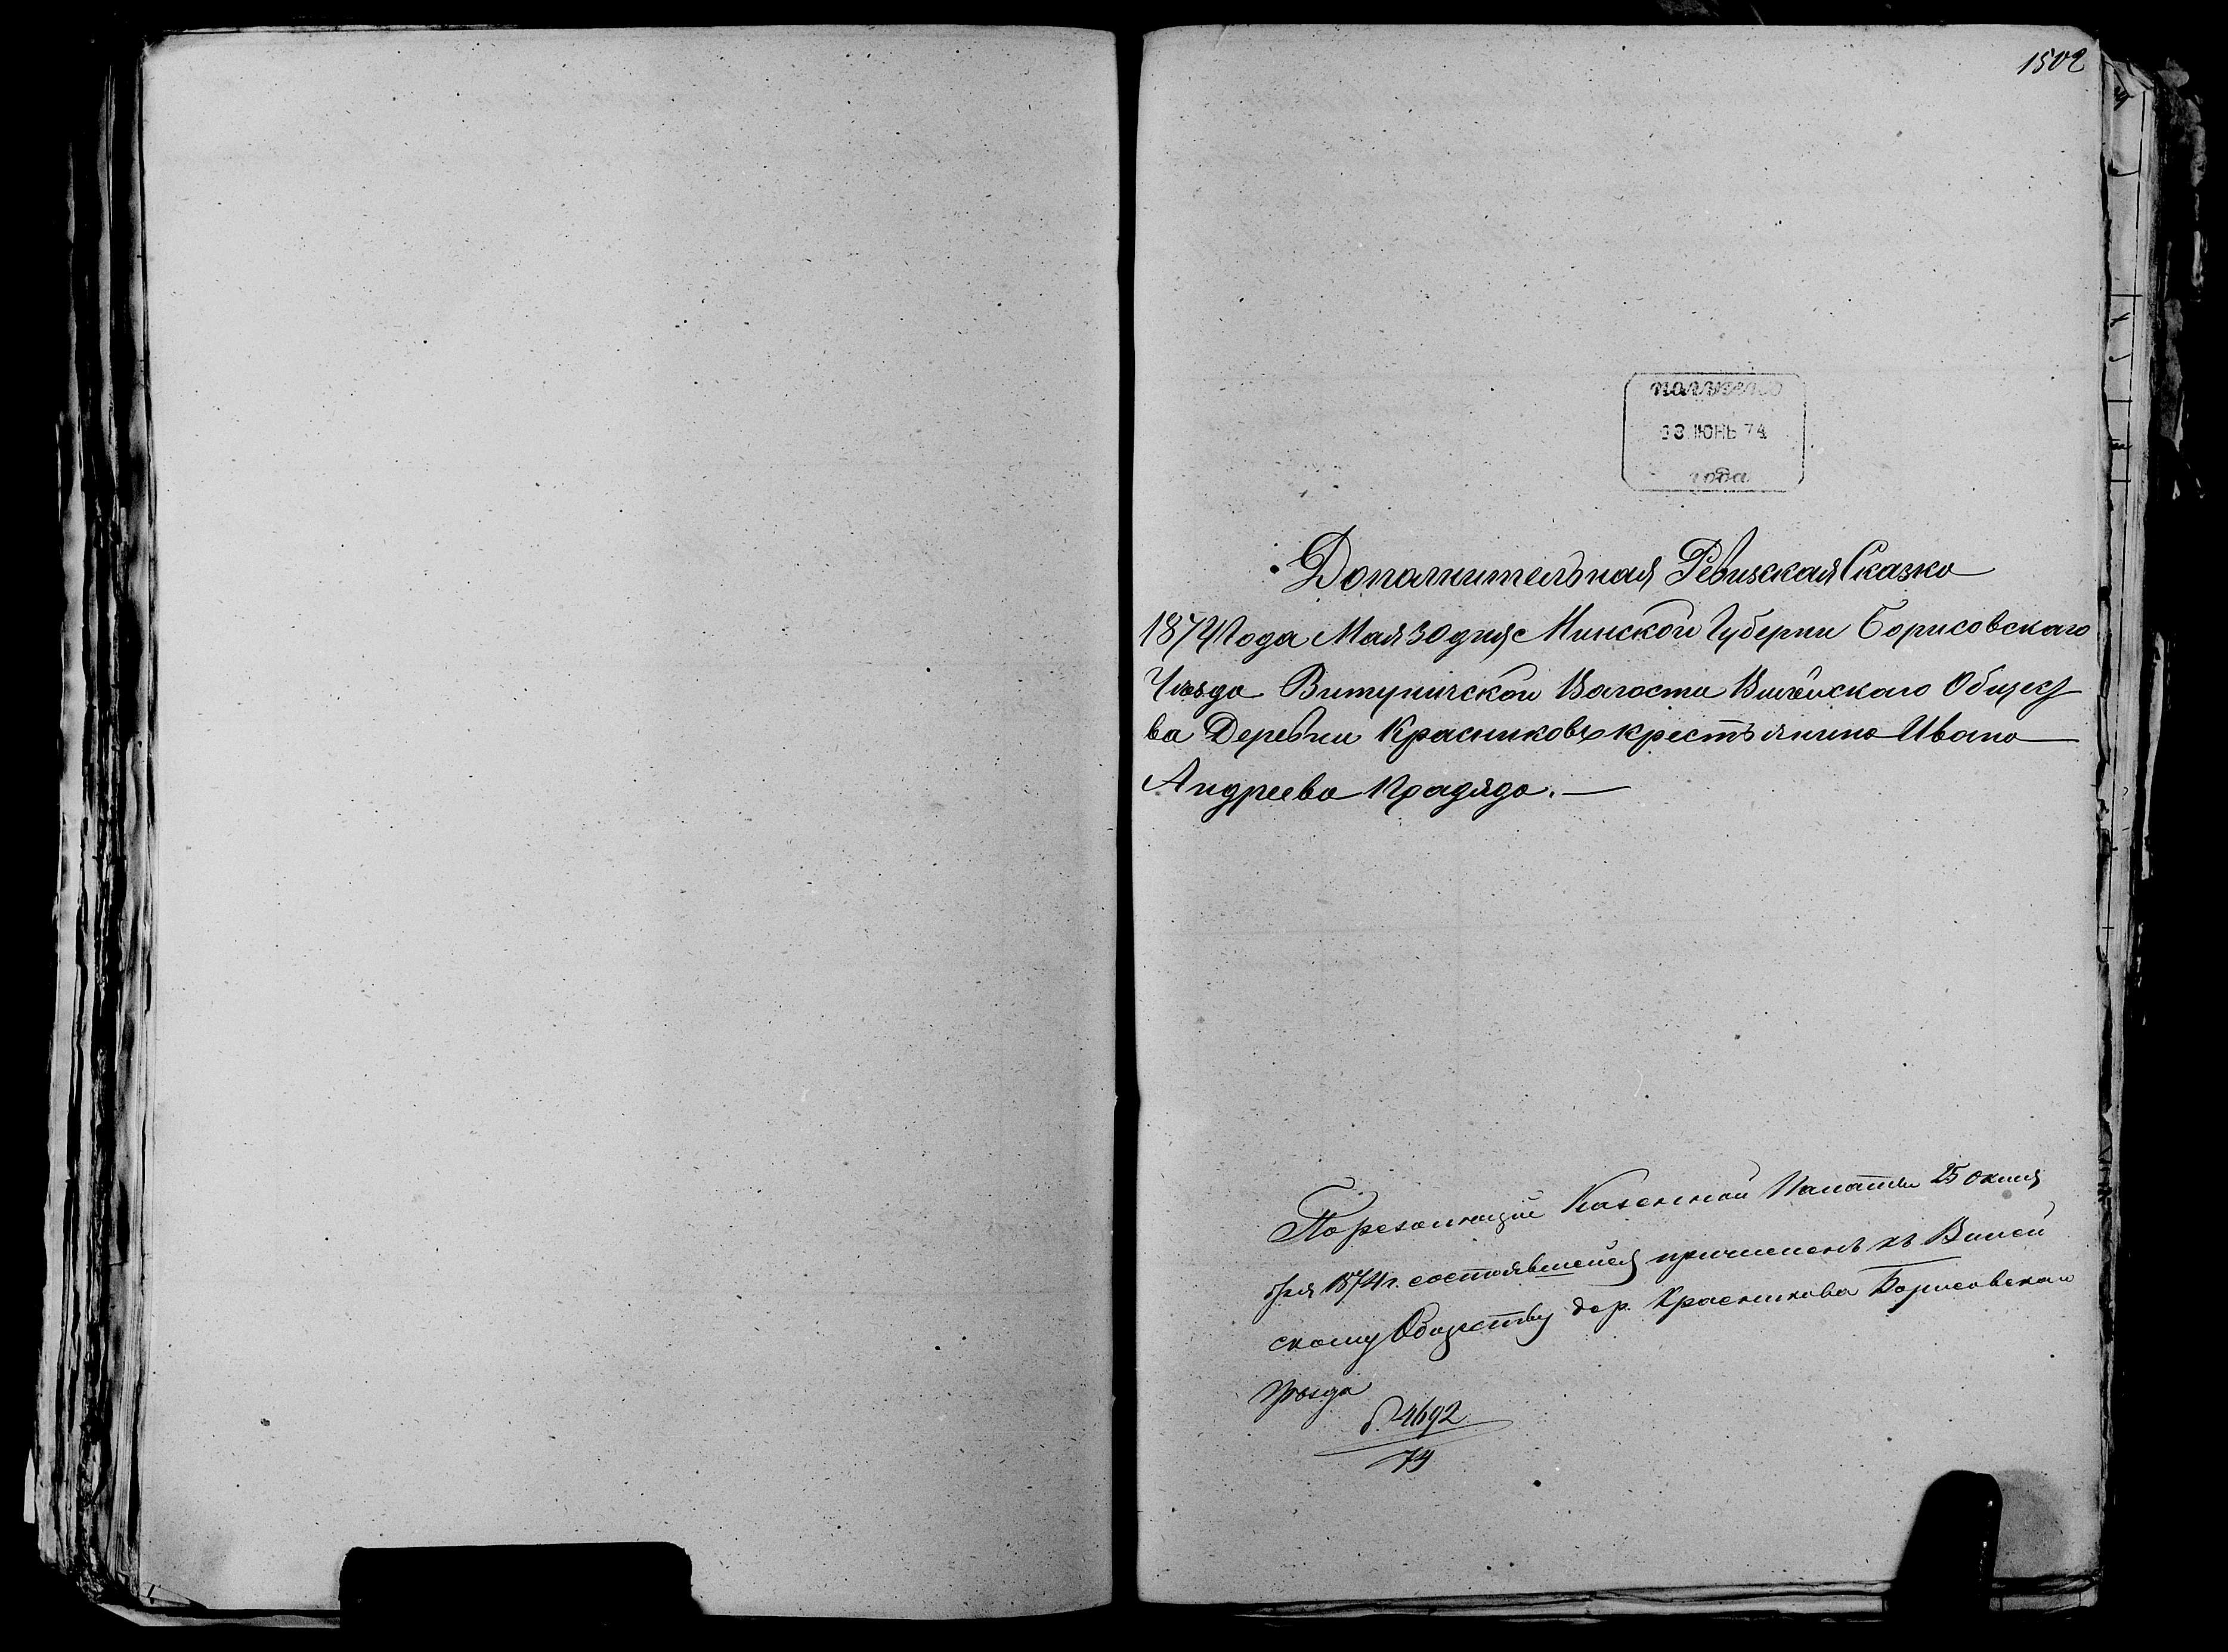 1502
получено
13 ІЮНЬ 74
года
Дополнительная Ревизская Сказка
1874 Года Мая 30 дня Минской Губерни Борисовскаго
Уѣзда Витуничской Волости Вилейскаго Общест
ва Деревни Красникова крестьянина Ивана
Андреева
По резолюціи Казенной Палаты 25 октя
бря 1874 г. состоявшейся причислен къ Вилей
скому Обществу дер. Красникова Борисовскаго
уѣзда
4692
74